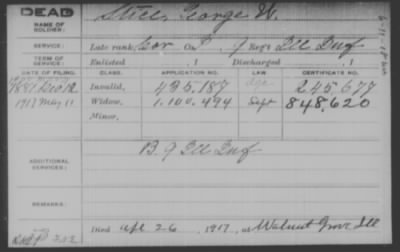 DEAD
NAME OF SOLDIER:
George W.
SERVICE:
Late rank, Cor Co. I, 9 Reg't Ill Inf
TERM OF SERVICE:
Enlisted , 1 Discharged , 1
DATE OF FILING. CLASS. APPLICATION NO. LAW. CERTIFICATE NO.
1881 Invalid, 435.187 245.677
1917 May 11 Widow, 1.100.494 Sept 848.620
Minor,
ADDITIONAL SERVICES:
B. 9 Ill Inf
REMARKS:
Died Apl 26, 1917, at Walnut Grove, Ill